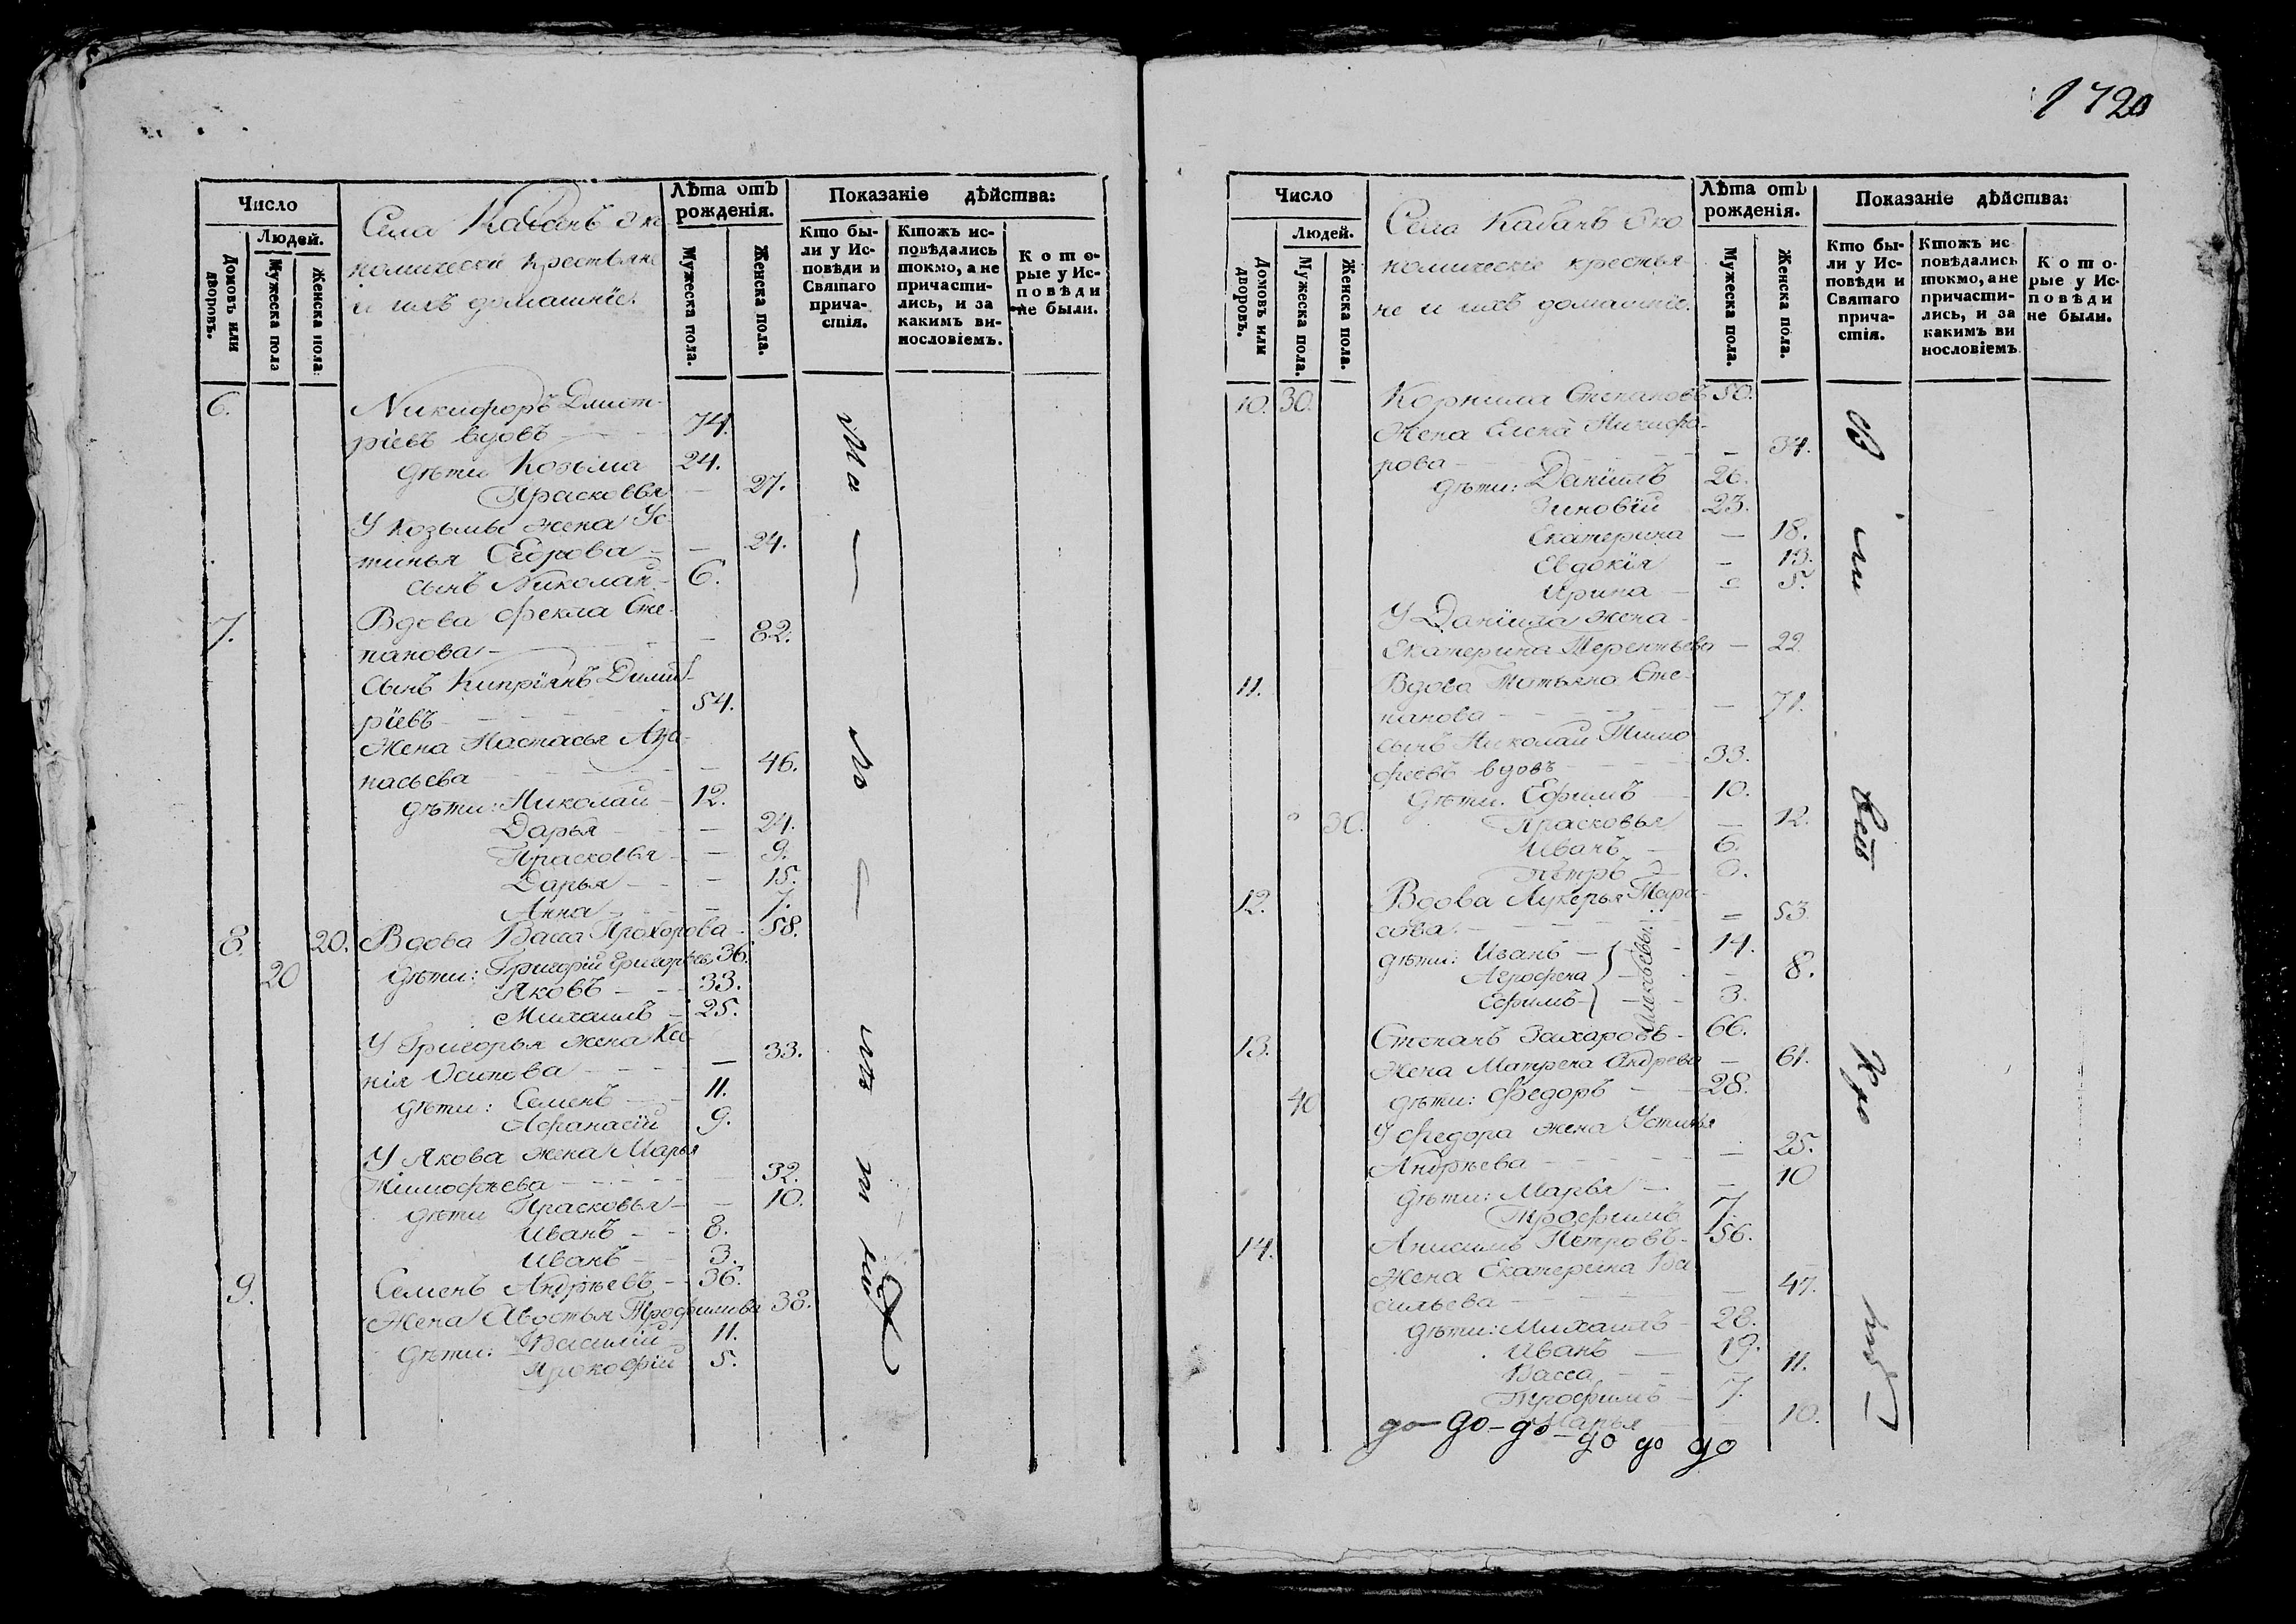 1720
Число
Людей.
Домовъ или дворовъ.
Мужеска пола
Женска пола.
Села Кабанъ эко
номическiи крестьяне
и ихъ домашнiе.
Лѣта отъ
рожденiя.
Мужеска пола.
Женска пола.
Показанiе дѣйства:
Кто бы-
ли у Ис-
повѣди и
Святаго
прича-
стiя.
Ктожъ ис-
повѣдались
токмо, а не
причасти-
лись, и за
какимъ ви-
нословiемъ.
Кото-
рые у Ис-
повѣди
не были.
6. Никифоръ Дмит-
рiевъ вдовъ 74.
дѣти Козьма 24.
Прасковья 27.
У Козьмы жена Ус-
тинья Егорова 24.
сынъ Николай 6.
7. Вдова Фекла Сте-
панова 82.
Сынъ Кипрiянъ Димит-
рiевъ 54.
Жена Настасья Афа-
насьева 46.
дѣти: Николай 12.
Дарья 24.
Прасковья 9.
Дарья 15.
Анна 7.
8. 20. Вдова Васса Прохорова 58.
20 дѣти: Григорiй Григорьевъ 36.
Яковъ 33.
Михаилъ 25.
У Григорья жена Ксе-
нiя Осипова 33.
дѣти: Семенъ 11.
Афанасiй 9.
У Якова жена Марья
Тимофѣева 32.
дѣти Прасковья 10.
Иванъ 8.
Иванъ 3.
9. Семенъ Андрѣевъ 36.
Жена Авдотья Трофимова 38.
дѣти: Василiй 11.
Прокофiй 5.
Число
Людей.
Домовъ или дворовъ.
Мужеска пола.
Женска пола.
Села Кабанъ Эко
номическiе крестья-
не и ихъ домашнiе.
Лѣта отъ
рожденiя.
Мужеска пола.
Женска пола.
Показанiе дѣйства:
Кто бы-
ли у Ис-
повѣди и
Святаго
прича-
стiя.
Ктожъ ис
повѣдались
токмо, а не
причасти-
лись, и за
какимъ ви
нословiемъ
Кото-
рые у Ис-
повѣди
не были.
10. 30. Корнила Степановъ 50.
Жена Елена Никифо-
рова 34.
дѣти: Данiилъ 26.
Зиновiй 23.
Екатерина 18.
Евдокiя 13.
Ирина 5.
У Данiила жена
Екатерина Терентьева 22
11. Вдова Татьяна Сте-
панова 71.
сынъ Николай Тимо
феевъ вдовъ 33.
дѣти. Ефимъ 10.
30. Прасковья 12.
Иванъ 6.
Петръ
12. Вдова Лукерья Тара-
сова 53.
дѣти: Иванъ 14.
Агрофена 8.
Ефимъ 3.
13. Степанъ Захаровъ 66.
Жена Матрена Андрева 61.
40 дѣти: Федоръ 28.
У Федора жена Устинья
Андрѣева 25.
дѣти: Марья 10
Трофимъ 7.
14. Анисимъ Петровъ 56.
Жена Екатерина Ва
сильева 47.
дѣти: Михаилъ 28.
Иванъ 19.
Васса 11.
Трофимъ 7.
Марья 10.
до до до до до до